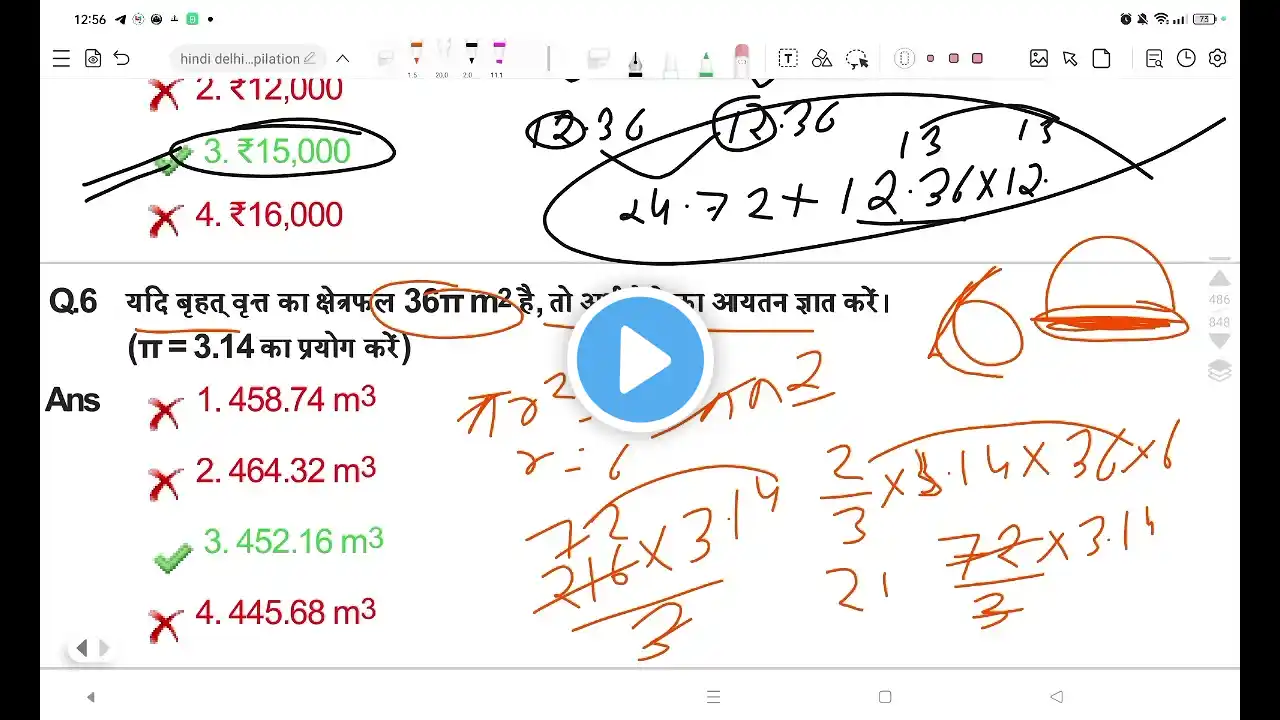 12:56
73
hindi delhi...pilation
1.5 20.0 2.0 11.1
2. ₹12,000
3. ₹15,000
4. ₹16,000
12.36 12.36
13 13
24.72 + 12.36 x 12.
486
848
Q.6 यदि बृहत् वृत्त का क्षेत्रफल 36π m² है, तो का आयतन ज्ञात करें।
(π = 3.14 का प्रयोग करें)
Ans 1. 458.74 m³
2. 464.32 m³
3. 452.16 m³
4. 445.68 m³
πr²
r = 6
72
216 x 3.14
3
2/3 x 3.14 x 36 x 6
72 x 3.14
3